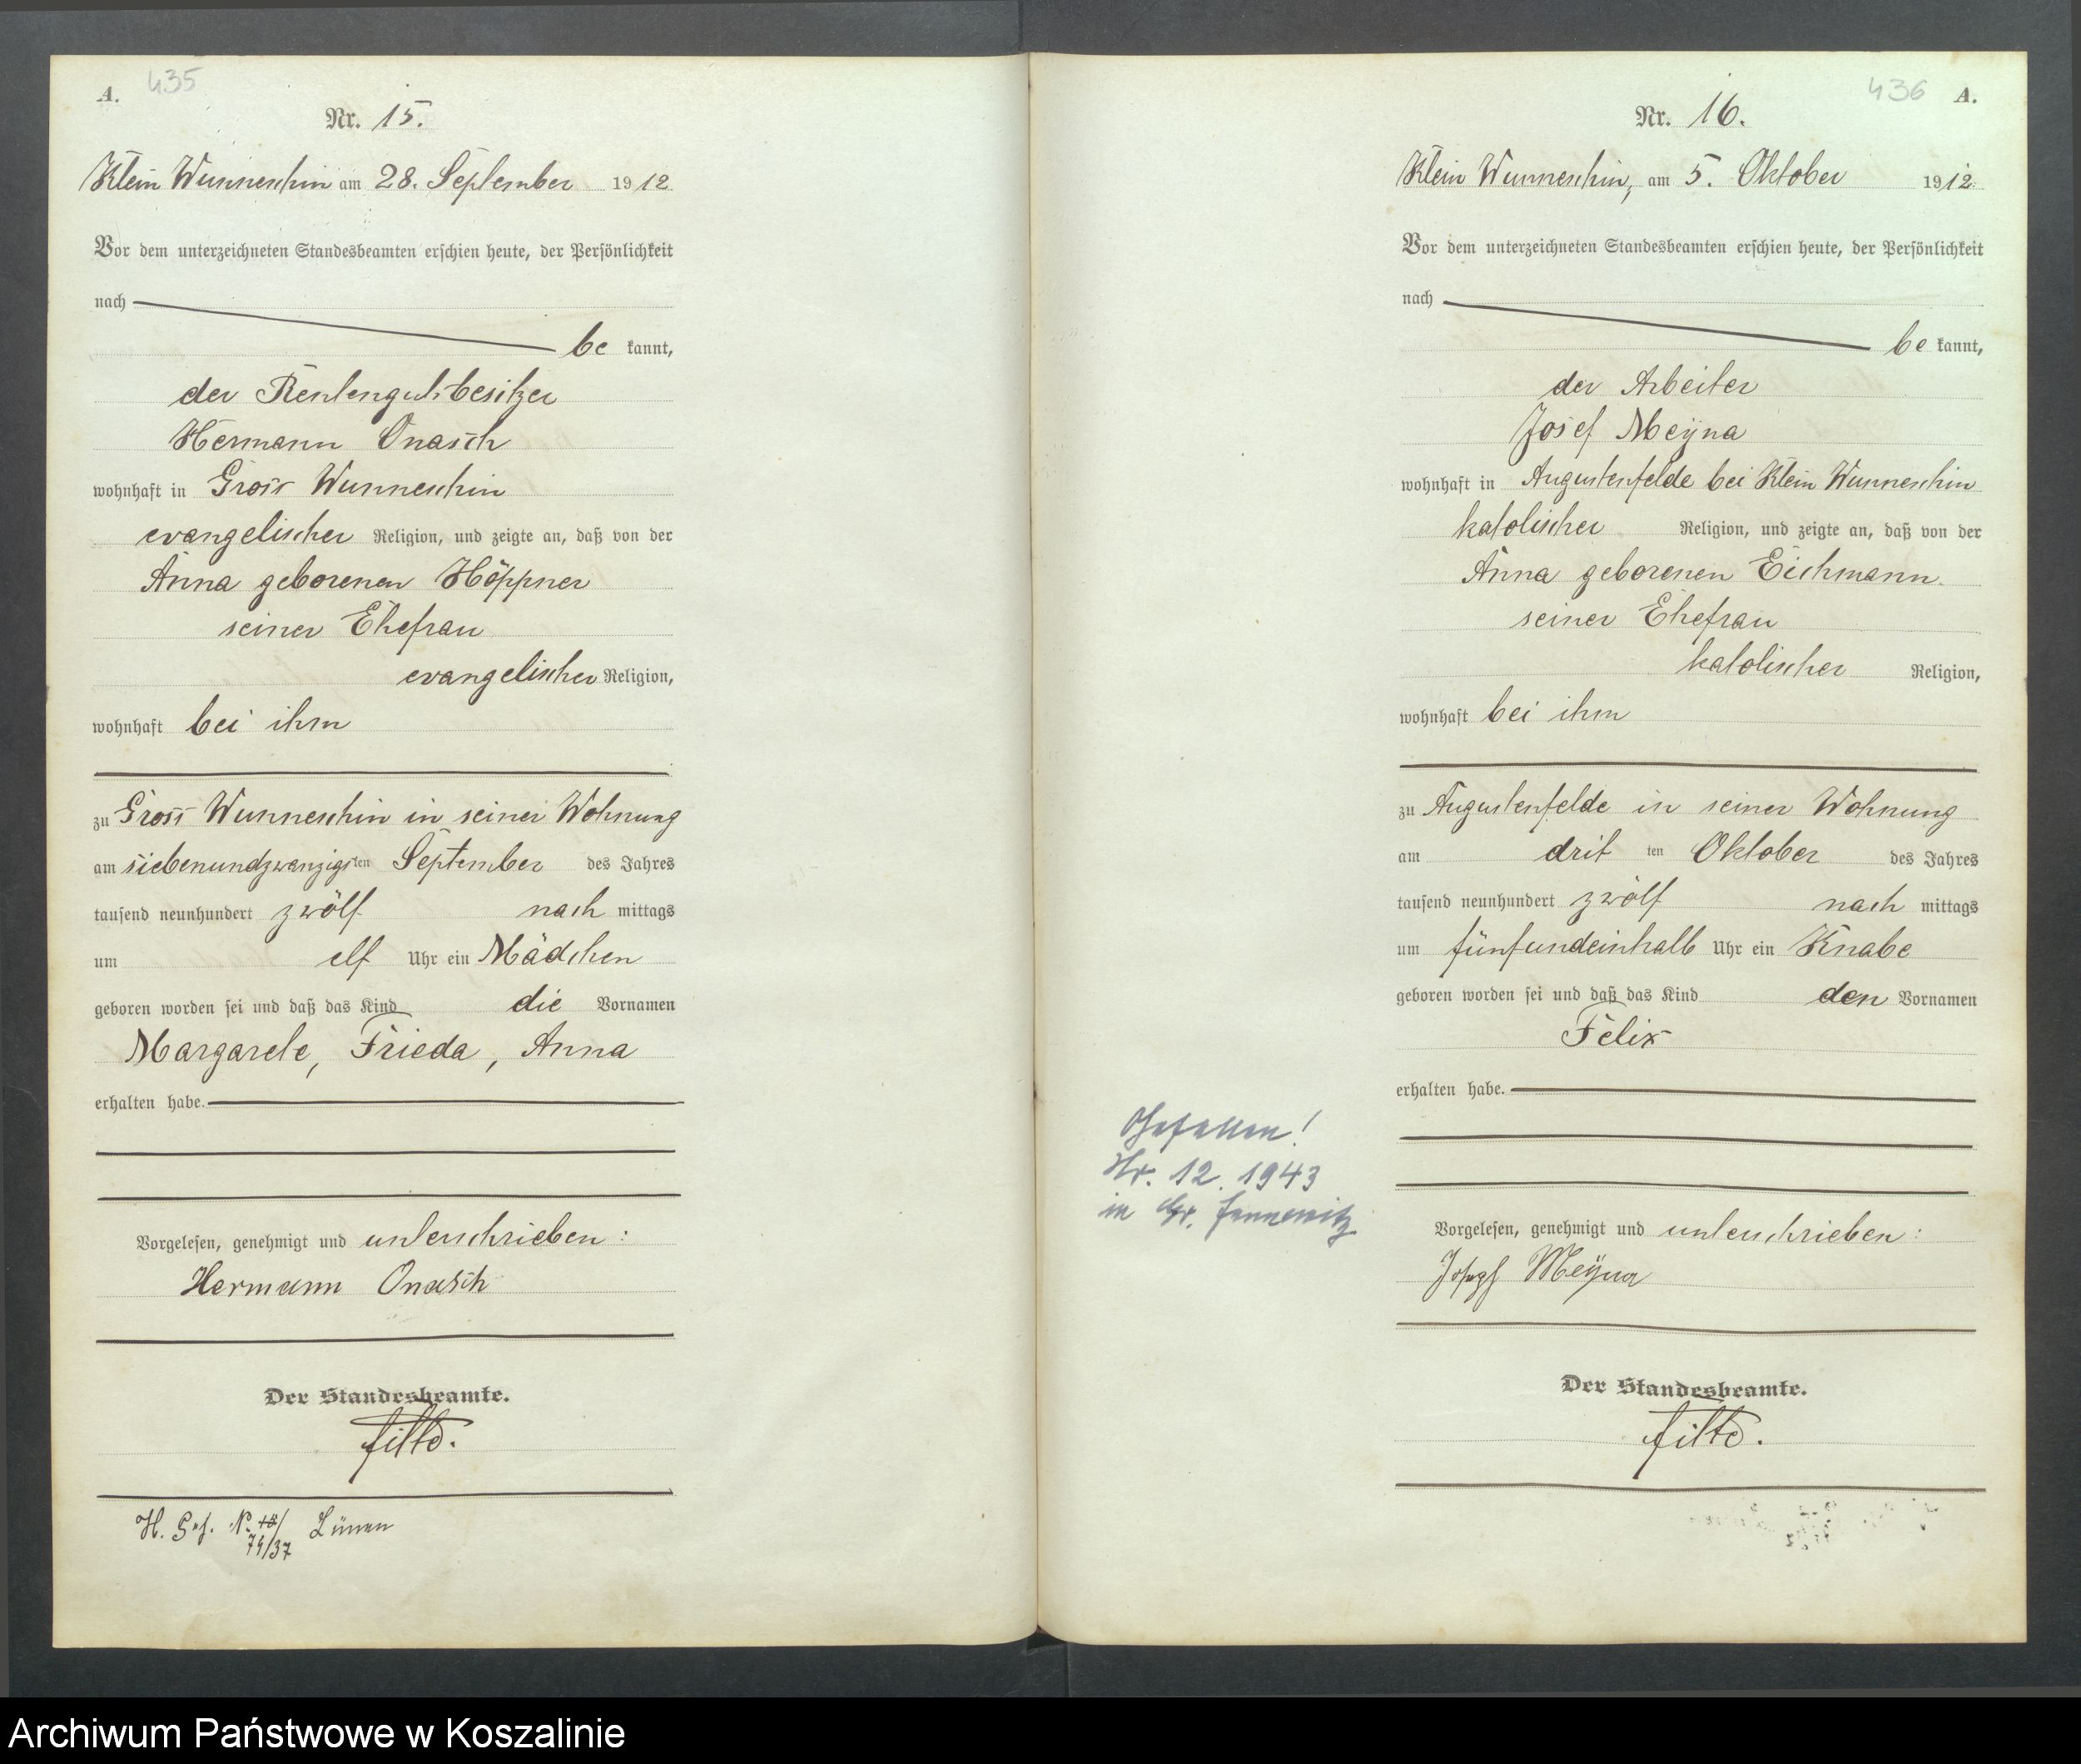 A. 435
Nr. 15.
Klein Wunneschin am 28. September 1912.
Vor dem unterzeichneten Standesbeamten erschien heute, der Persönlichkeit
nach
be kannt,
der Rentengutsbesitzer
Hermann Onasch
wohnhaft in Gross Wunneschin
evangelischer Religion, und zeigte an, daß von der
Anna geborenen Höppner
seiner Ehefrau
evangelischer Religion,
wohnhaft bei ihm
zu Gross Wunneschin in seiner Wohnung
am siebenundzwanzigsten September des Jahres
tausend neunhundert zwölf nach mittags
um elf Uhr ein Mädchen
geboren worden sei und daß das Kind die Vornamen
Margarete, Frieda, Anna
erhalten habe.
Vorgelesen, genehmigt und unterschrieben:
Hermann Onasch
Der Standesbeamte.
H. Nr. 74/37 Lünen
436 A.
Nr. 16.
Klein Wunneschin, am 5. Oktober 1912.
Vor dem unterzeichneten Standesbeamten erschien heute, der Persönlichkeit
nach
be kannt,
der Arbeiter
Josef Meyna
wohnhaft in Augustenfelde bei Klein Wunneschin
katolischer Religion, und zeigte an, daß von der
Anna geborenen Eichmann
seiner Ehefrau
katolischer Religion,
wohnhaft bei ihm
zu Augustenfelde in seiner Wohnung
am dritten Oktober des Jahres
tausend neunhundert zwölf nach mittags
um fünfundeinhalb Uhr ein Knabe
geboren worden sei und daß das Kind den Vornamen
Felix
erhalten habe.
Gefallen!
Nr. 12. 1943
in Gr. Jannewitz
Vorgelesen, genehmigt und unterschrieben:
Josef Meyna
Der Standesbeamte.
Archiwum Państwowe w Koszalinie